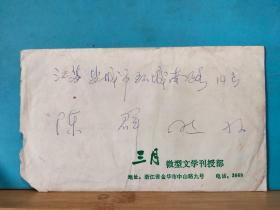 江苏盐城市环城南路14号
陈群 收
三月
微型文学刊授部
地址：浙江省金华市中山路九号 电话：3668